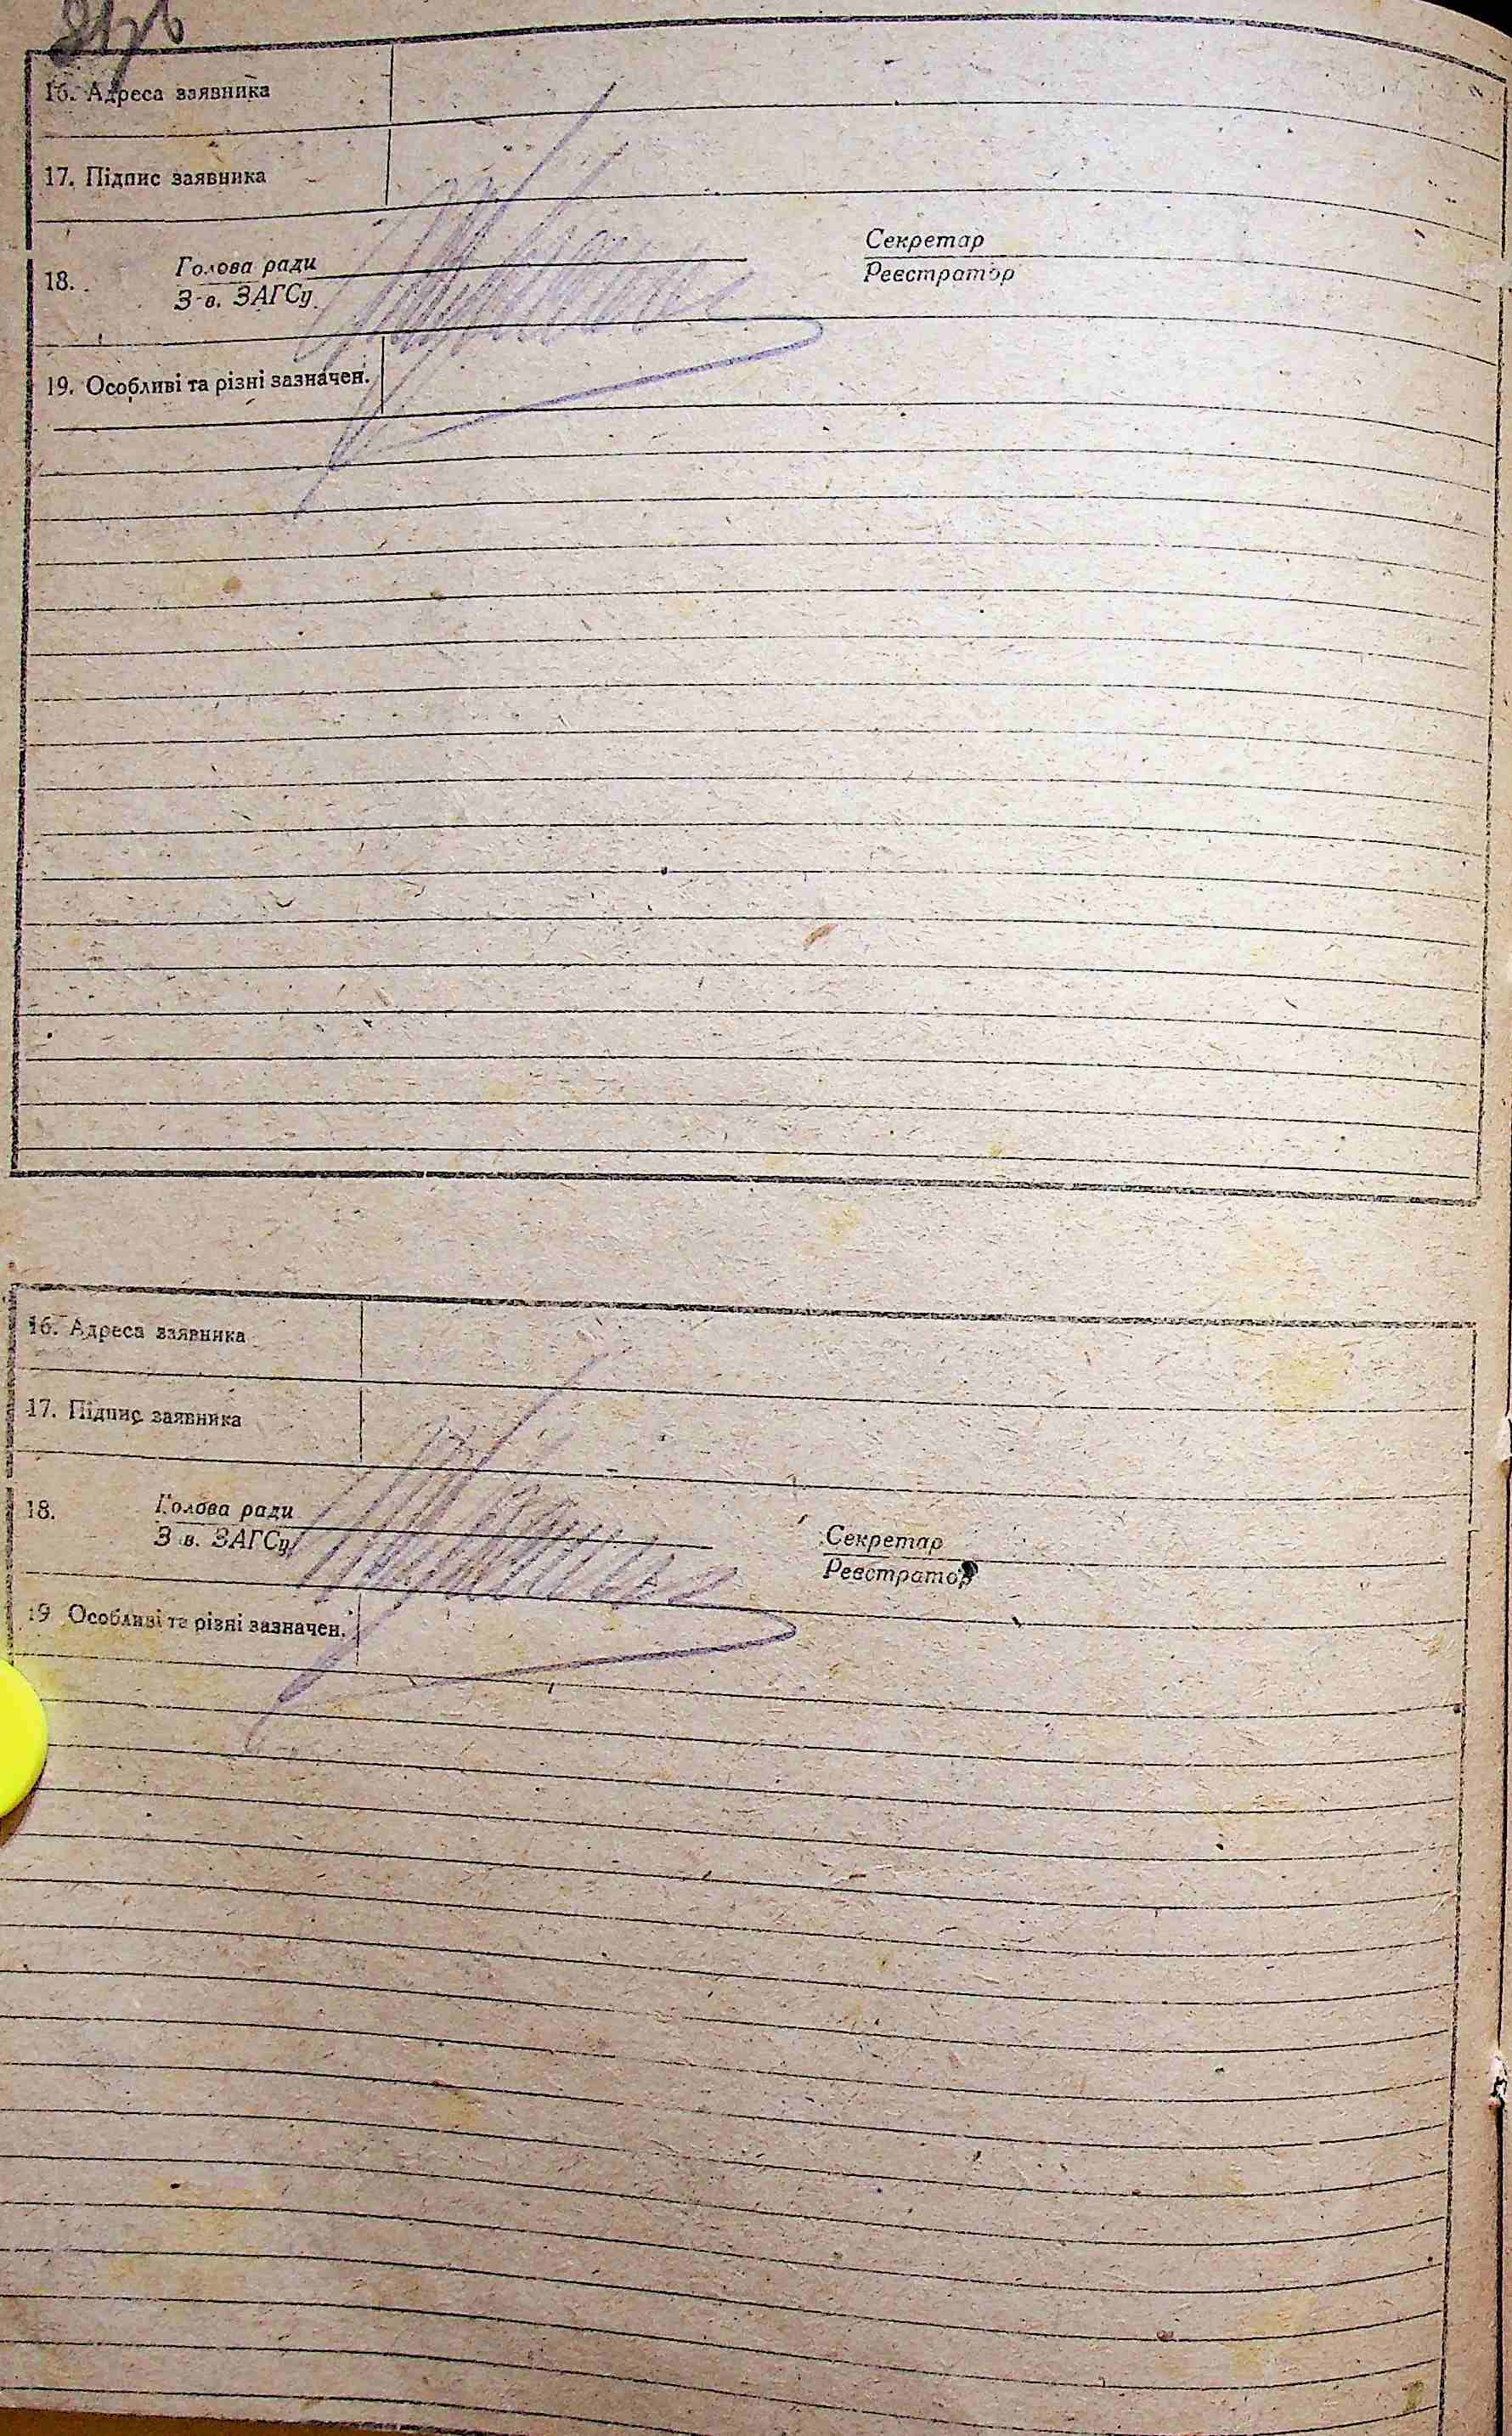 16. Адреса заявника
17. Підпис заявника
18. Голова ради
З в. ЗАГСу
Секретар
Реєстратор
19. Особливі та різні зазначен.
16. Адреса заявника
17. Підпис заявника
18. Голова ради
З в. ЗАГСу
Секретар
Реєстратор
19 Особливі та різні зазначен.